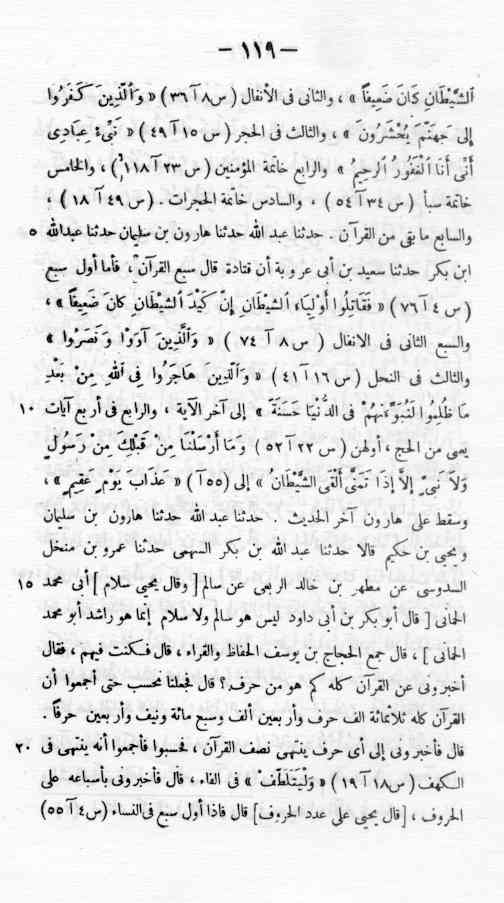 — ١١٩ —
ٱلشَّيْطَانِ كَانَ ضَعِيفاً » ، والثانى فى الأنفال (س ٨ آ ٣٦) « وَٱلَّذِينَ كَفَرُوا
إِلَى جَهَنَّمَ يُحْشَرُونَ » ، والثالث فى الحجر (س ١٥ آ ٤٩) « نَبِّىْٔ عِبَادِى
أَنِّى أَنَا ٱلْغَفُورُ ٱلرَّحِيمُ » والرابع خاتمة المؤمنين (س ٢٣ آ ١١٨) ، والخامس
خاتمة سبأ (س ٣٤ آ ٥٤) ، والسادس خاتمة الحجرات . (س ٤٩ آ ١٨) ،
والسابع ما بقى من القرآن . حدثنا عبد الله حدثنا هارون بن سليمان حدثنا عبدالله ٥
ابن بكر حدثنا سعيد بن أبى عروبة أن قتادة قال سبع القرآن ، فأما أول سبع
(س ٤ آ ٧٦) « فَقَاتِلُوا أَوْلِيَاءَ ٱلشَّيْطَانِ إِنَّ كَيْدَ ٱلشَّيْطَانِ كَانَ ضَعِيفاً » ،
والسبع الثانى فى الانفال (س ٨ آ ٧٤) « وَٱلَّذِينَ آوَوْا وَنَصَرُوا »
والثالث فى النحل (س ١٦ آ ٤١) « وَٱلَّذِينَ هَاجَرُوا فِى ٱللهِ مِنْ بَعْدِ
مَا ظُلِمُوا لَنُبَوِّئَنَّهُمْ فى الدُّنْيَا حَسَنَةً » إلى آخر الآية ، والرابع فى أربع آيات ١٠
يمى من الحج ، أولهن (س ٢٢ آ ٥٢) وَمَا أَرْسَلْنَا مِنْ قَبْلِكَ مِنْ رَسُولٍ
وَلاَ نَبِىٍّ إِلاَّ إِذَا تَمَنَّى أَلْقَى الشَّيْطَانُ » إلى (٥٥ آ) « عَذَابَ يَوْمٍ عَقِيمٍ » ،
وسقط على هارون آخر الحديث . حدثنا عبد الله حدثنا هارون بن سليمان
ويحيى بن حكيم قالا حدثنا عبد الله بن بكر السهمى حدثنا عمرو بن منخل
السدوسى عن مطهر بن خالد الربعى عن سالم [ وقال يحيى سلام ] أبى محمد ١٥
الحمانى [ قال أبو بكر بن أبى داود ليس هو سالم ولا سلام إنما هو راشد أبو محمد
الحمانى ] ، قال جمع الحجاج بن يوسف الحفاظ والقراء ، قال فكنت فيهم ، فقال
أخبرونى عن القرآن كله كم هو من حرف ؟ قال فجعلنا نحسب حتى أجمعوا أن
القرآن كله ثلاثمائة الف حرف وأربعين ألف وسبع مائة ونيف وأربعين حرفاً .
قال فأخبرونى إلى أى حرف ينتهى نصف القرآن ، فحسبوا فأجمعوا أنه ينتهى فى ٢٠
الكهف (س ١٨ آ ١٩) « وَلْيَتَلَطَّفْ » فى الفاء ، قال فأخبرونى بأسباعه على
الحروف ، [قال يحيى على عدد الحروف] قال فاذا أول سبع فى النساء (س ٤ آ ٥٥)